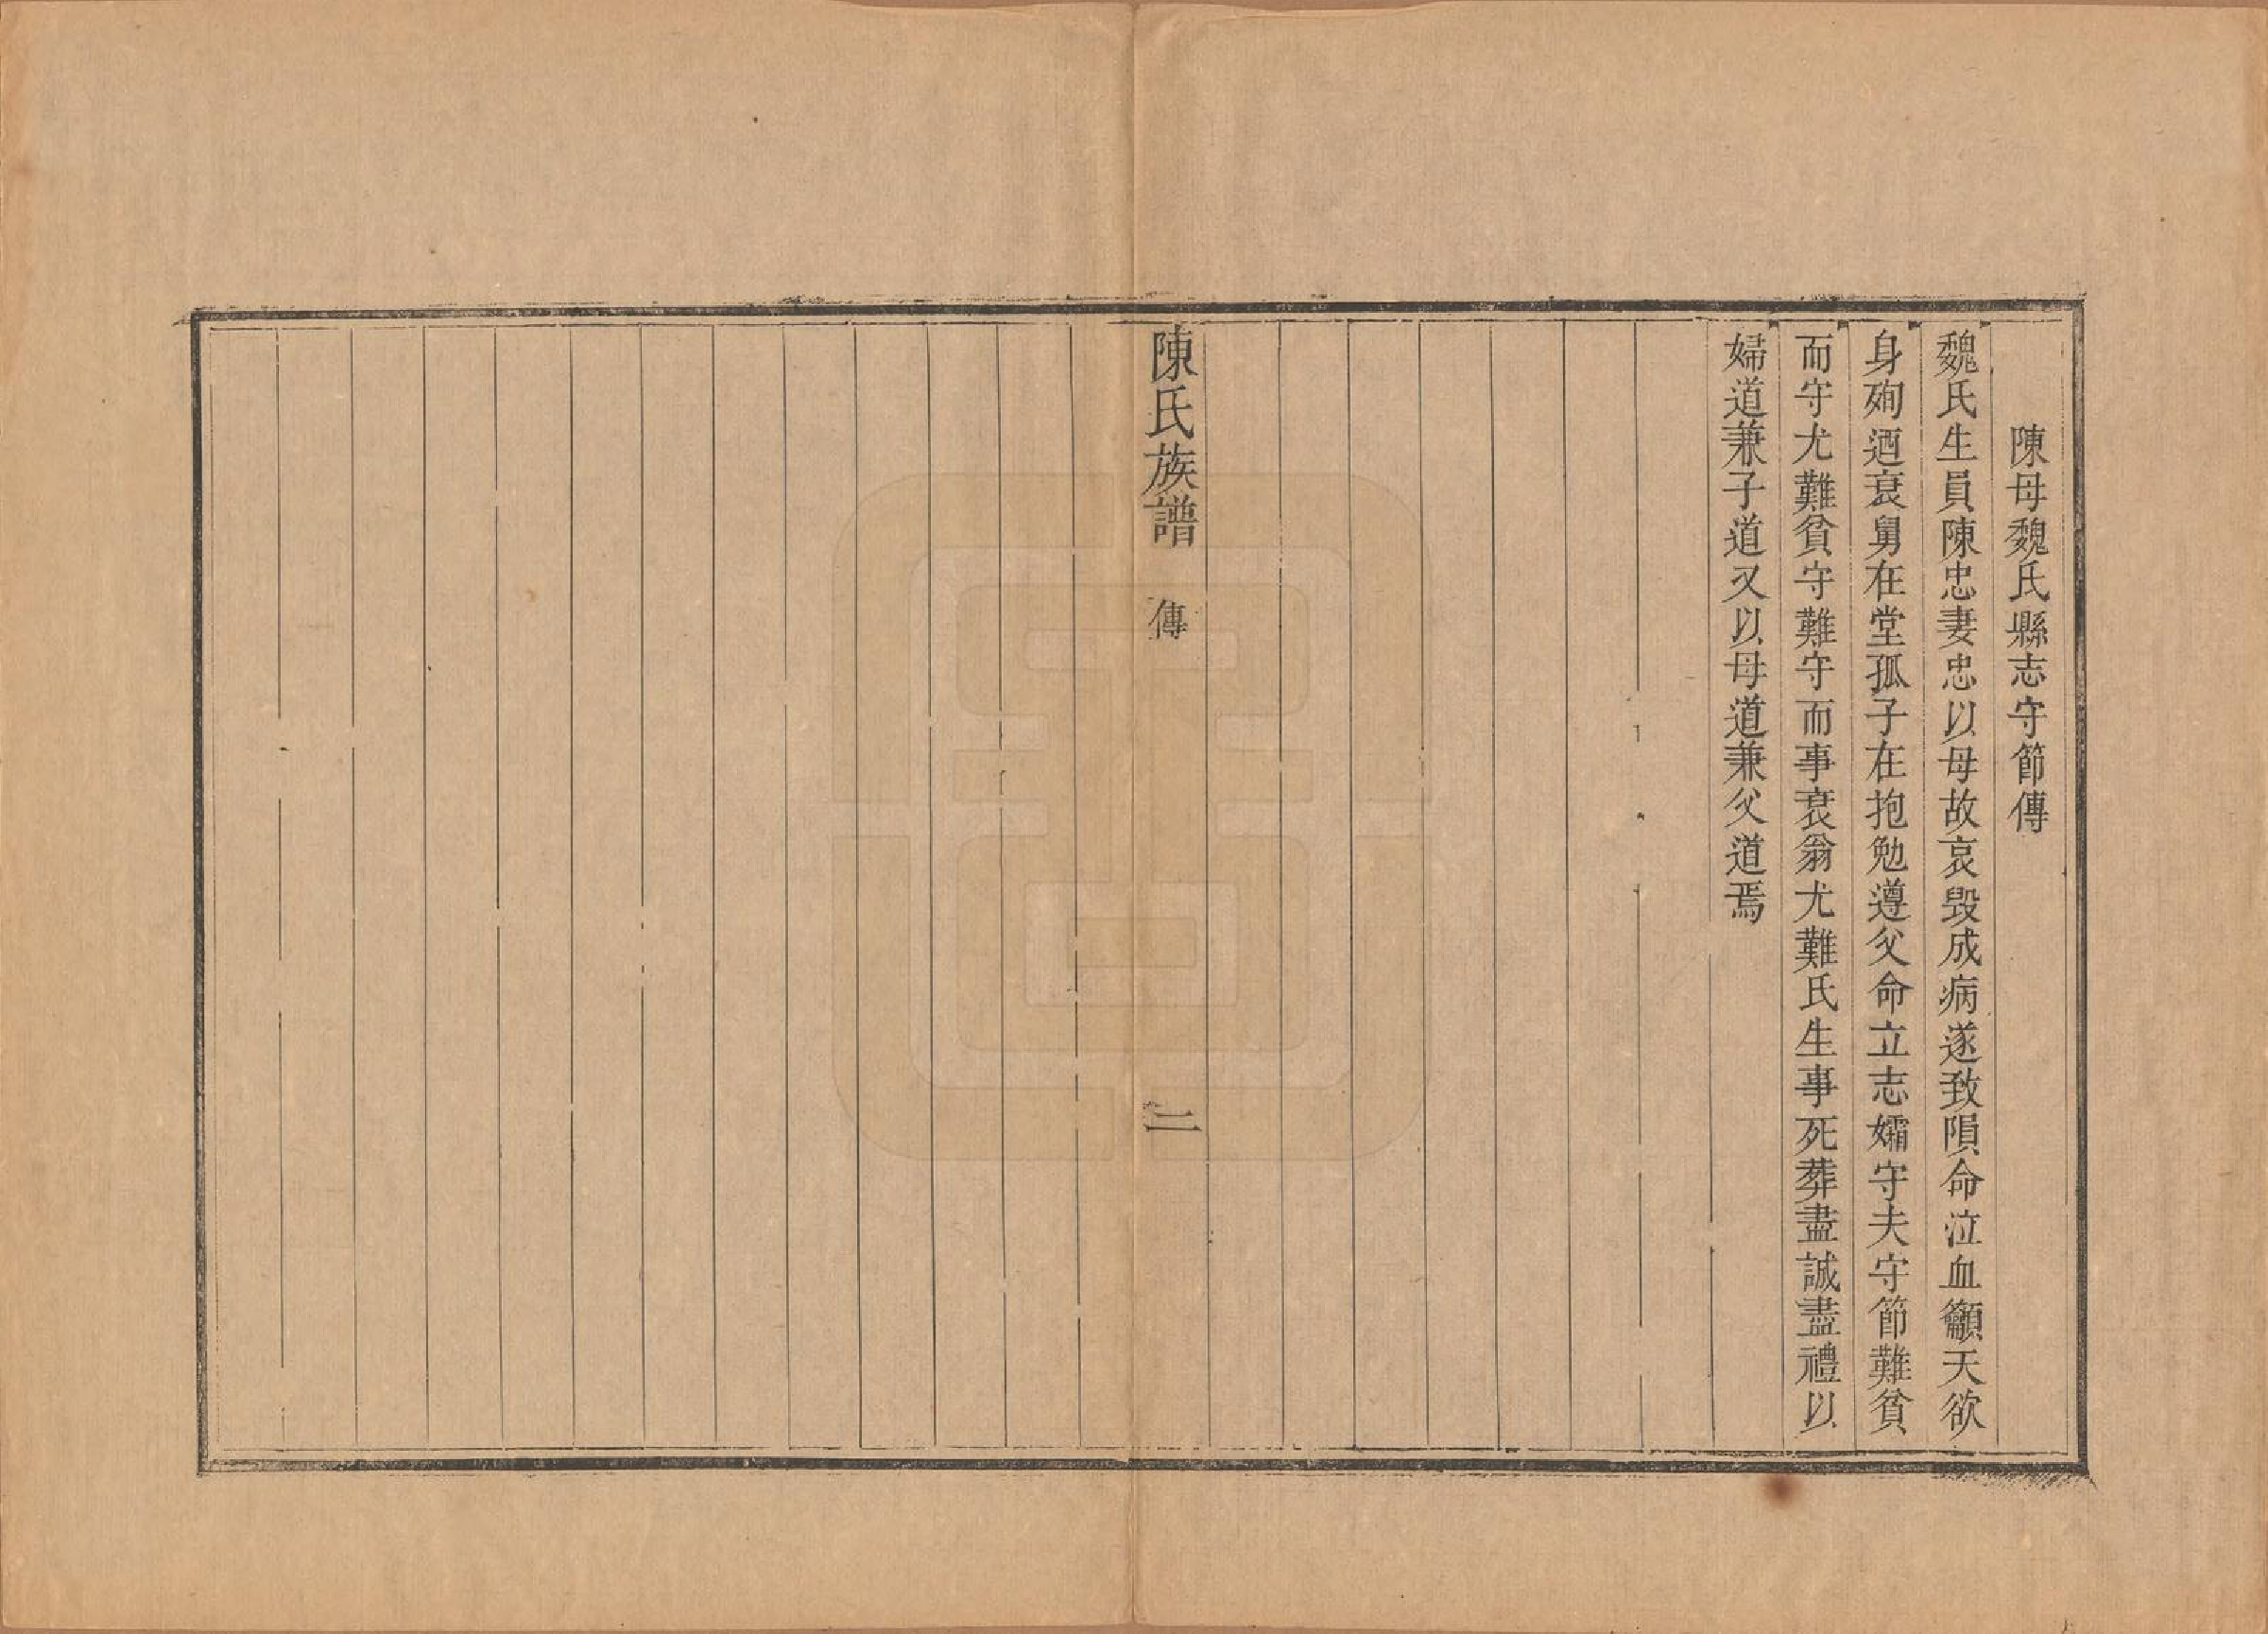 陳母魏氏縣志守節傳
魏氏生員陳忠妻忠以母故哀毀成病遂致隕命泣血籲天欲
身殉迺衰舅在堂孤子在抱勉遵父命立志孀守夫守節難貧
而守尤難貧守難守而事衰翁尤難氏生事死葬盡誠盡禮以
婦道兼子道又以母道兼父道焉
陳氏族譜 傳 二